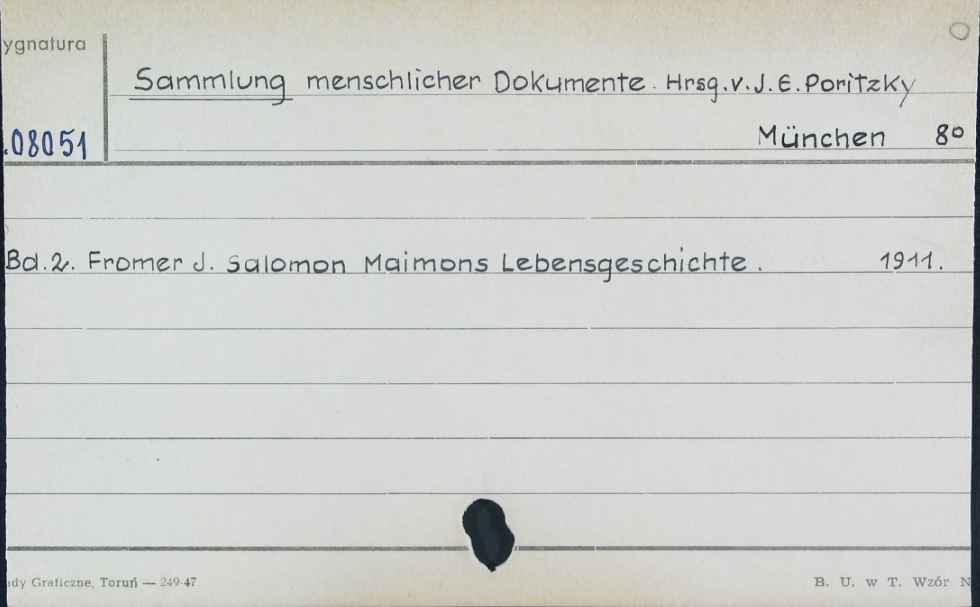 ygnatura
Sammlung menschlicher Dokumente. Hrsg.v.J.E.Poritzky
.08051
München 8º
Bd.2. Fromer J. Salomon Maimons Lebensgeschichte. 1911.
dy Graficzne, Toruń — 249-47
B. U. w T. Wzór N